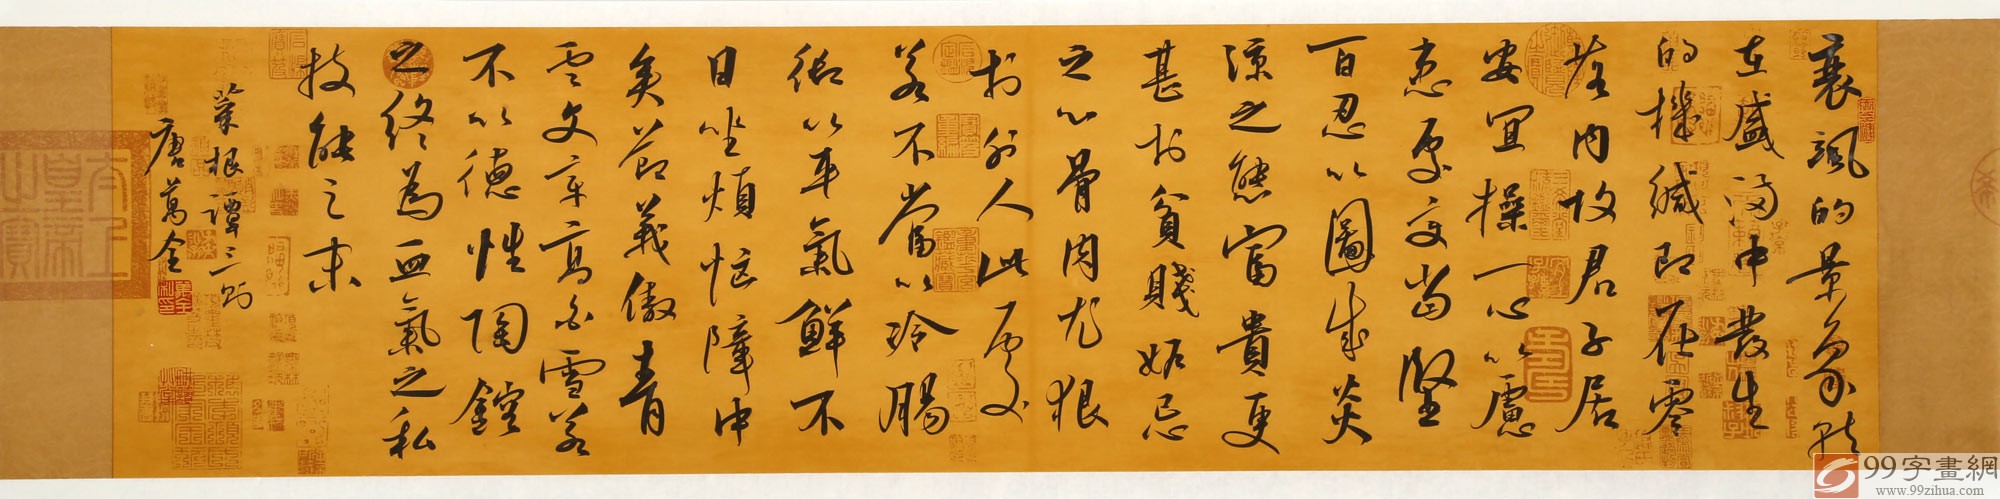 衰颯的景象就
在盛滿中發生
的機緘即在零
落內故君子居
安宜操一心以慮
患處變當堅
百忍以圖成炎
涼之態富貴更
甚於貧賤妬忌
之心骨肉尤狠
於外人此處
若不當以冷腸
御以平氣鮮不
日坐煩惱障中
矣節義傲青
雲文章高白雪若
不以德性陶鎔
之終為血氣之私
技能之末
菜根譚三則
唐萬全
99字畫網
www.99zihua.com